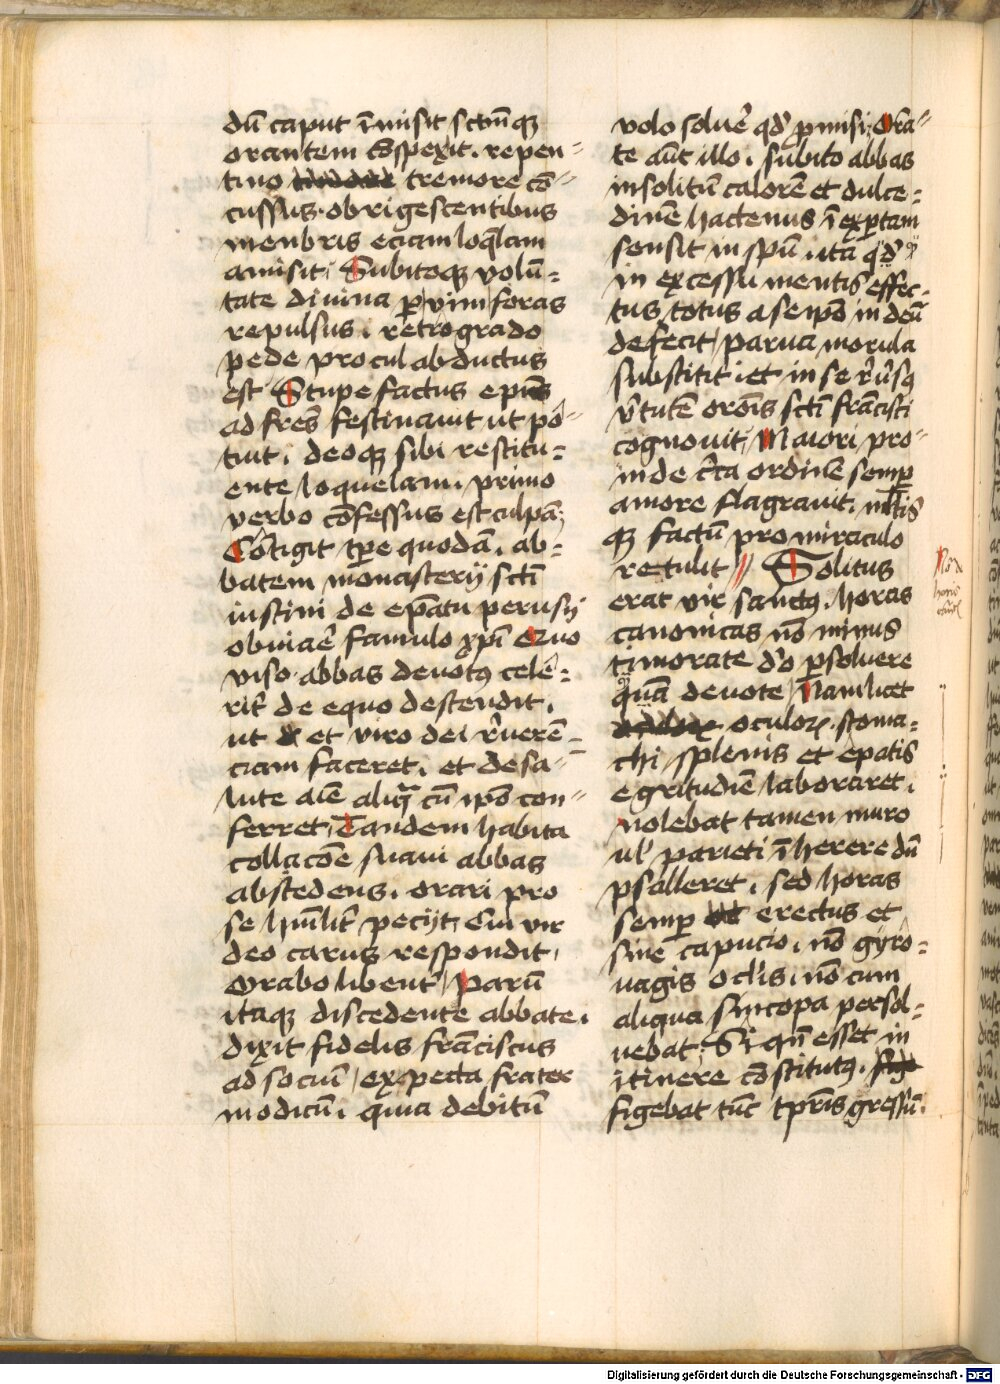 dū caput īmisit sctūqꝫ
orantem ꝯspexit. repen-
tino tremore cō-
cussus. obrigescentibus
menbris eciam loq̄lam
amisit. Subitoqꝫ volū-
tate diuina ꝑ vim foras
repulsus. retrogrado
pede procul abductus
est Stupefactus ep̄us
ad fr̄es festinauit ut po-
tuit. deoqꝫ sibi restitu-
ente loquelam. primo
verbo cōfessus est culpā.
Cōtigit tꝑe quodā. ab-
batem monasterij scti
iustini de ep̄atu perusij
obuiare famulo xp̄i Quo
viso. abbas deuotꝰ cele-
rit̄ de equo descendit.
ut et viro dei r̄uerē-
ciam faceret. et de sa-
lute aīe aliq̄ cū ip̄o con-
ferret. Tandem habita
collacōe suaui abbas
abscedens. orari pro
se hūilit̄ pecijt Cui vir
deo carus respondit.
Orabo libent̄ Parū
itaqꝫ discedente abbate.
dixit fidelis frāciscus
ad sociū expecta frater
modicū. quia debitū
volo soluē qd̄ ꝓmisi. Orā-
te aūt illo. subito abbas
insolitū calorē et dulce-
dinē hactenus īexꝑtam
sensit in sp̄u. ita qd̄
in excessu mentis effec-
tus. totus a seip̄o in deū
defecit parua morula
substitit. et in se r̄usqꝫ
v̄tutē orōis scti frācisci
cognouit. Maiori pro-
inde c̄ca ordinē semꝑ
amore flagrauit. ml̄tis
qꝫ factū pro miraculo
retulit Solitus
erat vir sanctꝰ. horas
canonicas nō minus
timorate d̄o ꝑsoluere
quā deuote Nam licet
oculoꝝ. stoma-
chi splenis et epatis
egritudīe laboraret.
nolebat tamen muro
ul̄ parieti īherere dū
psalleret. sed horas
semꝑ erectus et
sine capucio. nō gyro-
uagis ocl̄is. nō cum
aliqua sincopa persol-
uebat. Si qn̄ esset in
itinere cōstitutꝰ.
figebat tūc tꝑris gressū.
Digitalisierung gefördert durch die Deutsche Forschungsgemeinschaft - DFG